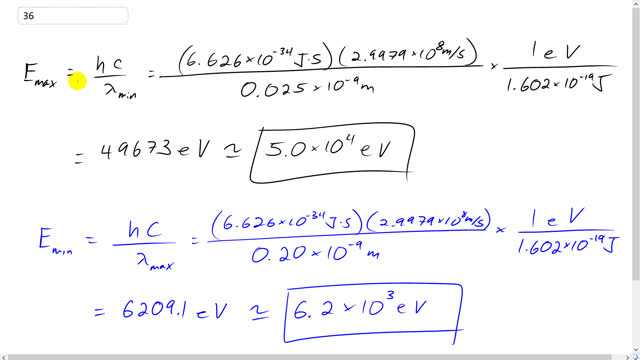 36
E_max = hC/λ_min = (6.626×10^-34 J·S)(2.9979×10^8 m/s)/0.025×10^-9 m × 1eV/1.602×10^-19 J
= 49673 eV ≃ 5.0×10^4 eV
E_min = hC/λ_max = (6.626×10^-34 J·S)(2.9979×10^8 m/s)/0.20×10^-9 m × 1eV/1.602×10^-19 J
= 6209.1 eV ≃ 6.2×10^3 eV